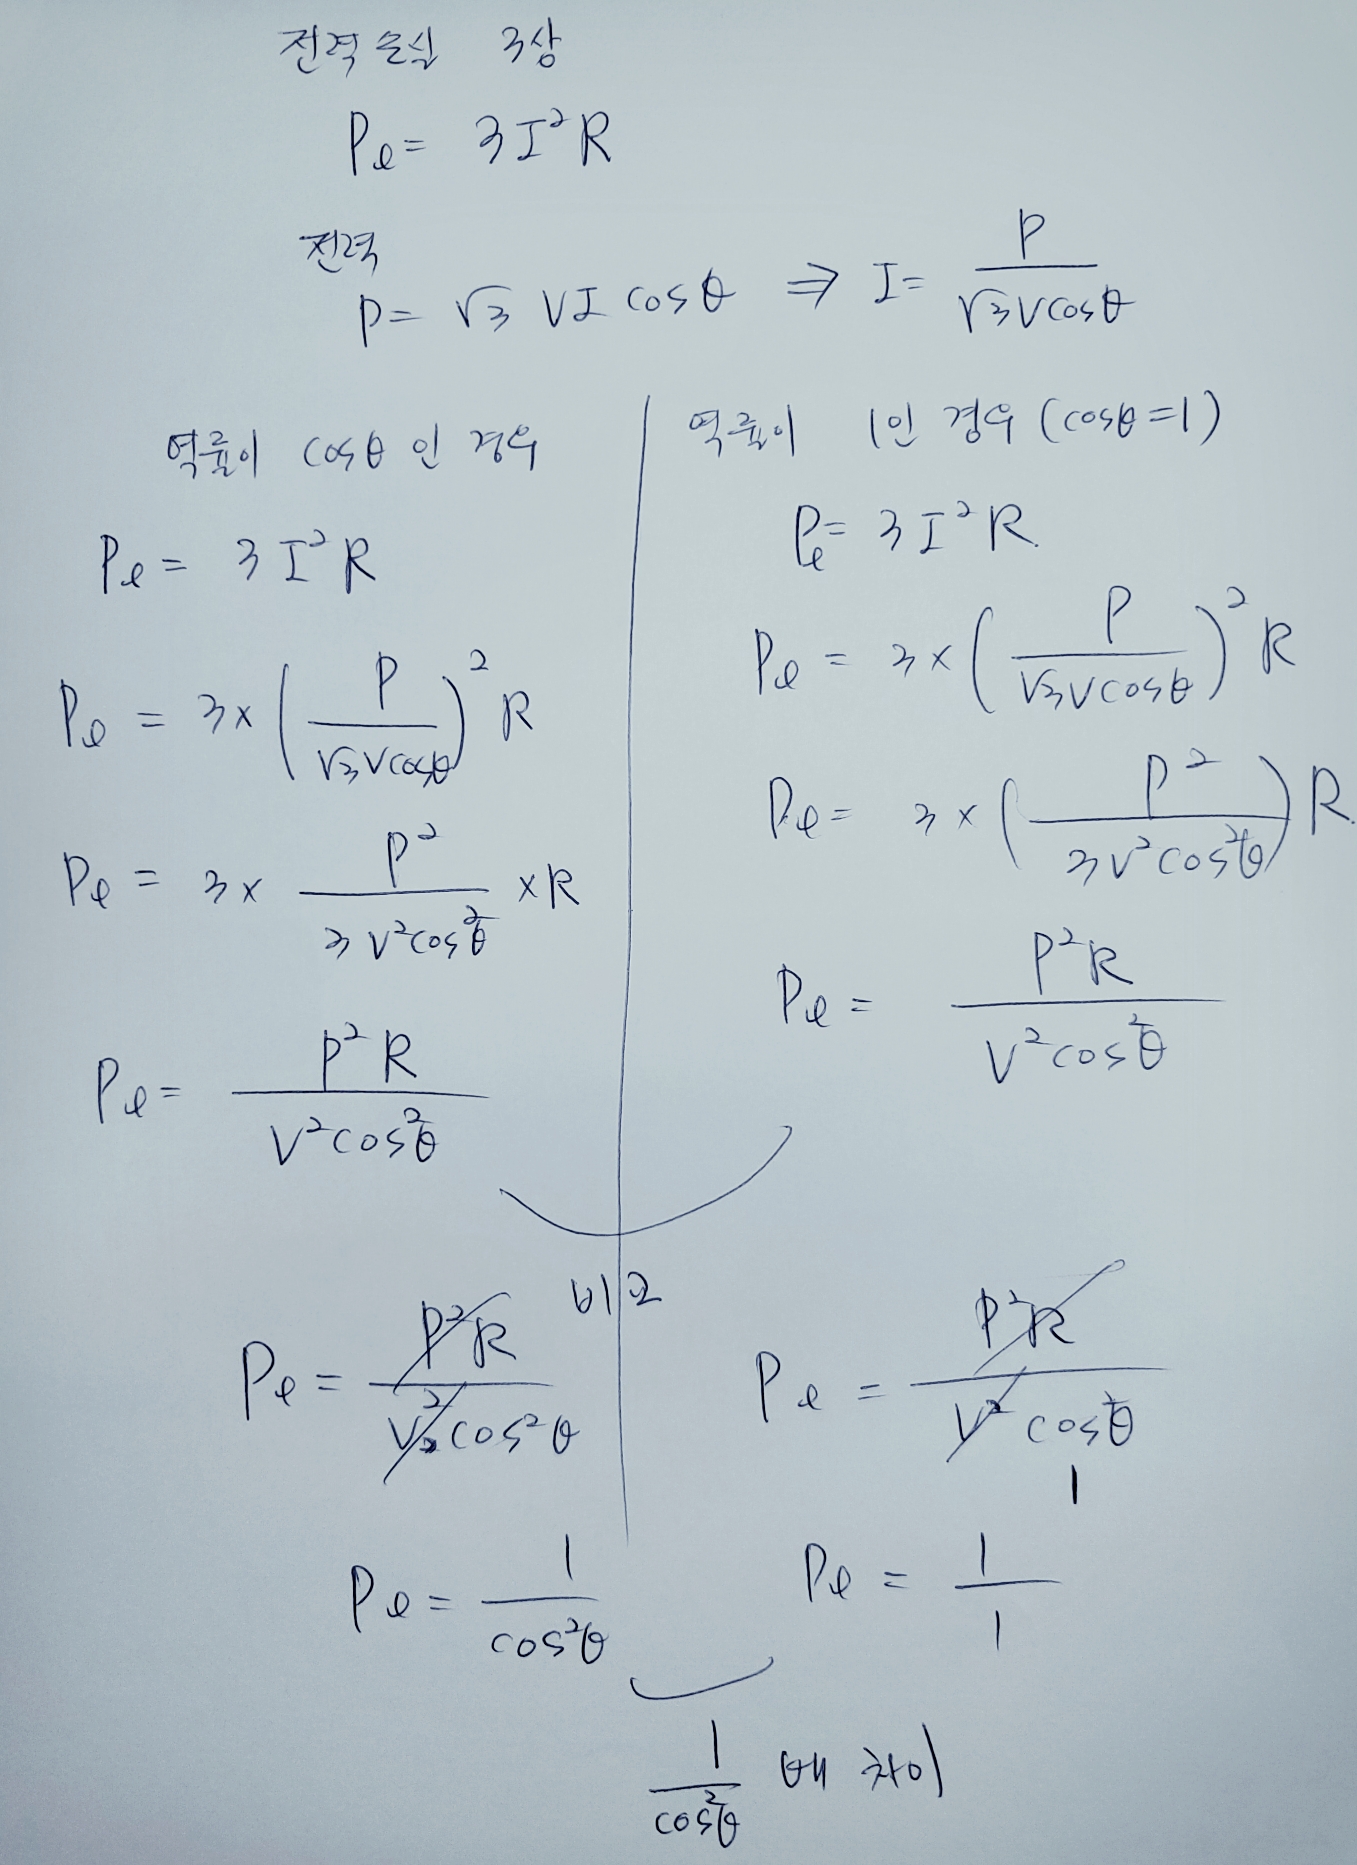 전력손실 3상
Pℓ = 3I²R
전력
P = √3 VI cosθ ⇒ I = P / √3Vcosθ
역률이 cosθ 인 경우
Pℓ = 3I²R
Pℓ = 3×(P / √3Vcosθ)²R
Pℓ = 3× P² / 3V²cos²θ ×R
Pℓ = P²R / V²cos²θ
역률이 1인 경우 (cosθ=1)
Pℓ = 3I²R.
Pℓ = 3×(P / √3Vcosθ)²R
Pℓ = 3×(P² / 3V²cos²θ)R.
Pℓ = P²R / V²cos²θ
비교
Pℓ = P²R / V²cos²θ
Pℓ = 1 / cos²θ
Pℓ = P²R / V²cos²θ
1
Pℓ = 1 / 1
1 / cos²θ 배 차이